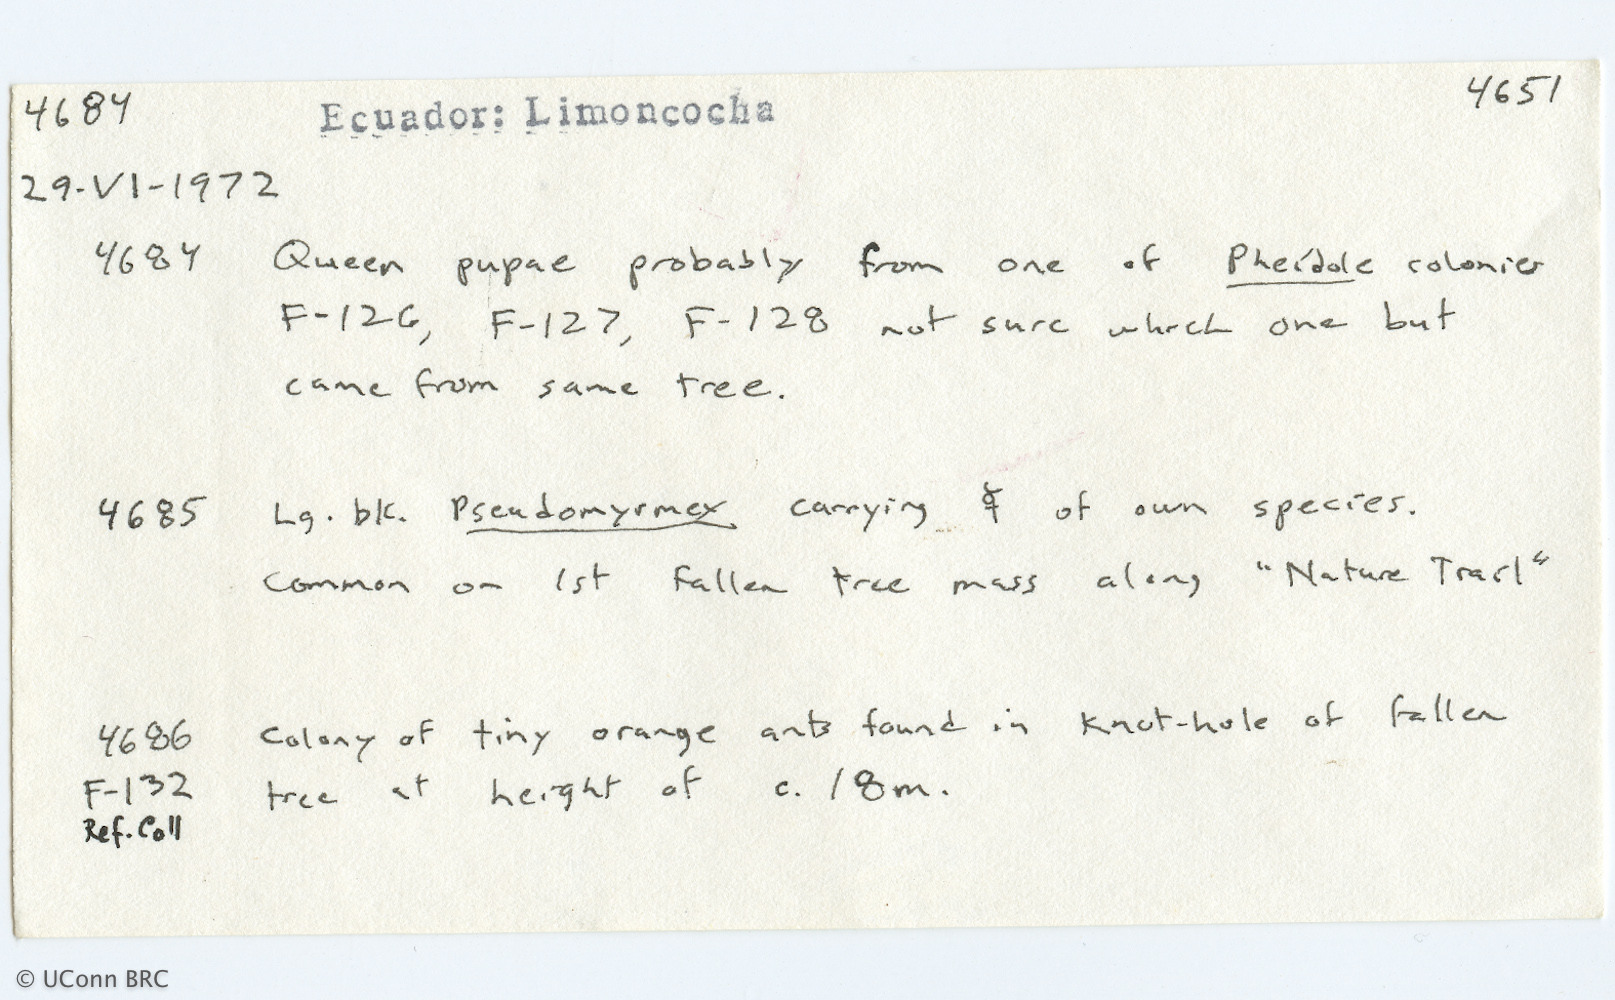 4684 Ecuador: Limoncocha 4651
29-VI-1972
4684 Queen pupae probably from one of Pheidole colonies
F-126, F-127, F-128 not sure which one but
came from same tree.
4685 Lg. blk. Pseudomyrmex carrying ☿ of own species.
Common on 1st fallen tree mass along "Nature Trail"
4686 Colony of tiny orange ants found in knot-hole of fallen
F-132 tree at height of c. 18m.
Ref. Coll
© UConn BRC